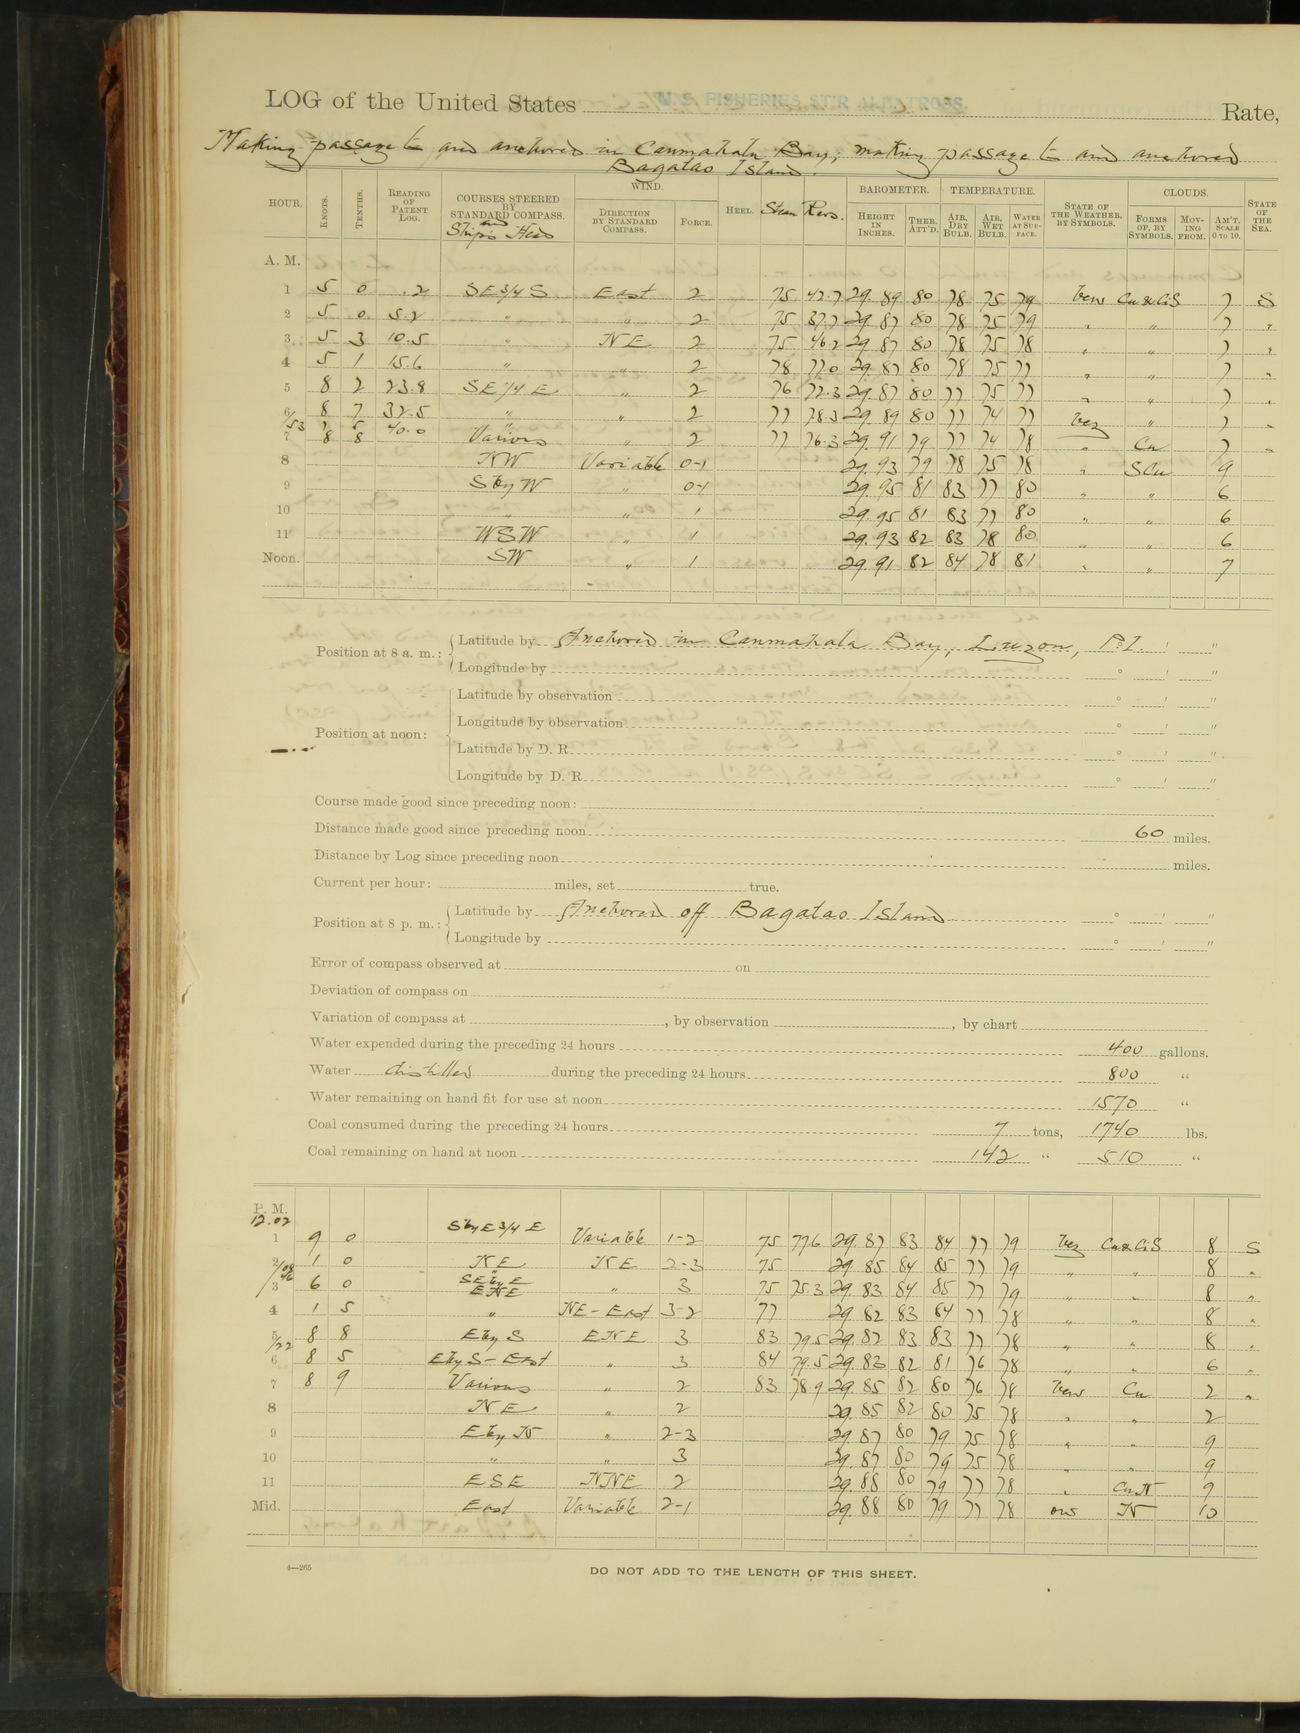 LOG of the United States U. S. FISHERIES ST'R ALBATROSS. Rate,
Making passage to and anchored in Canmahala Bay; making passage to and anchored
Bagatao Island.
HOUR. KNOTS. TENTHS. READING OF PATENT LOG. COURSES STEERED BY STANDARD COMPASS. and Ship's Head WIND. DIRECTION BY STANDARD COMPASS. FORCE. HEEL. Steam Revs. BAROMETER. HEIGHT IN INCHES. THER. ATT'D. TEMPERATURE. AIR, DRY BULB. AIR, WET BULB. WATER AT SURFACE. STATE OF THE WEATHER, BY SYMBOLS. CLOUDS. FORMS OF, BY SYMBOLS. MOVING FROM. AM'T. SCALE 0 TO 10. STATE OF THE SEA.
A. M.
1 5 0 .2 SE 3/4 S East 2 75 47.7 29.89 80 78 75 79 Cu & CiS 7 S
2 5 0 5.2 " " 2 75 37.7 29.87 80 78 75 79 " " 7 "
3 5 3 10.5 " NE 2 75 46.2 29.87 80 78 75 78 " " 7 "
4 5 1 15.6 " " 2 78 77.0 29.87 80 78 75 77 " " 7 "
5 8 2 23.8 SE 1/4 E " 2 76 72.3 29.87 80 77 75 77 " " 7 "
6 8 7 32.5 " " 2 77 78.3 29.89 80 77 74 77 " 7 "
/53 7 8 8 40.0 Various " 2 77 76.3 29.91 79 77 74 78 " Cu 7 "
8 NW Variable 0-1 29.93 79 78 75 78 " SCu 9
9 S by W " 0-1 29.95 81 83 77 80 " " 6
10 " " 1 29.95 81 83 77 80 " " 6
11 WSW " 1 29.93 82 83 78 80 " " 6
Noon. SW " 1 29.91 82 84 78 81 " " 7
Position at 8 a. m.: Latitude by Anchored in Canmahala Bay, Luzon, P.I. ' "
Longitude by ° ' "
Position at noon: Latitude by observation ° ' "
Longitude by observation ° ' "
Latitude by D. R. ° ' "
Longitude by D. R. ° ' "
Course made good since preceding noon:
Distance made good since preceding noon 60 miles.
Distance by Log since preceding noon miles.
Current per hour: miles, set true.
Position at 8 p. m.: Latitude by Anchored off Bagatao Island ° ' "
Longitude by ° ' "
Error of compass observed at on
Deviation of compass on
Variation of compass at , by observation , by chart
Water expended during the preceding 24 hours 400 gallons.
Water distilled during the preceding 24 hours 800 "
Water remaining on hand fit for use at noon 1570 "
Coal consumed during the preceding 24 hours 7 tons, 1740 lbs.
Coal remaining on hand at noon 142 " 510 "
P. M.
12.02
1 9 0 S by E 3/4 E Variable 1-2 75 77.6 29.87 83 84 77 79 Cu & CiS 8 S
2 /08 1 0 NE NE 2-3 75 29.85 84 85 77 79 " " 8 "
/46 3 6 0 SE by E ENE " 3 75 75.3 29.83 84 85 77 79 " " 8 "
4 1 5 " NE - East 3-2 77 29.82 83 84 77 78 " " 8 "
5 8 8 E by S ENE 3 83 79.5 29.82 83 83 77 78 " " 8 "
/22 6 8 5 E by S - East " 3 84 79.5 29.83 82 81 76 78 " " 6 "
7 8 9 Various " 2 83 78.9 29.85 82 80 76 78 Cu 2 "
8 NE " 2 29.85 82 80 75 78 " " 2
9 E by N " 2-3 29.87 80 79 75 78 " " 9
10 " " 3 29.87 80 79 75 78 " " 9
11 ESE NNE 2 29.88 80 79 77 78 " CuN 9
Mid. East Variable 2-1 29.88 80 79 77 78 N 10
4—265
DO NOT ADD TO THE LENGTH OF THIS SHEET.